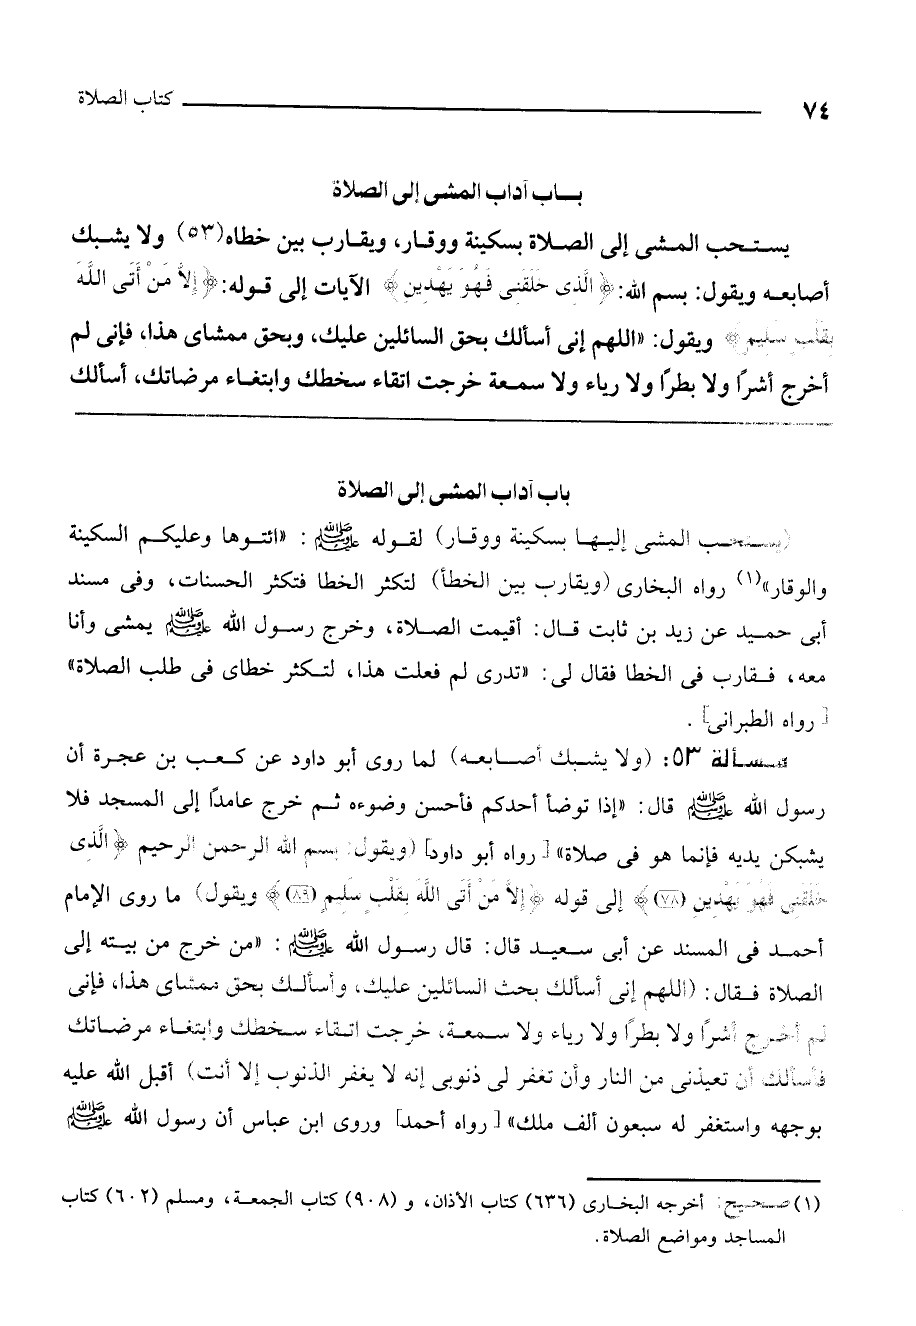 ٧٤ كتاب الصلاة
بـاب آداب المشى إلى الصلاة
يستـحب المـشى إلى الصـلاة بسكينة ووقـار، ويقـارب بين خطاه(٥٣) ولا يشـبك
أصابعـه ويقول: بسم الله: ﴿الَّذِى خَلَقَنِى فَهُوَ يَهْدِينِ﴾ الآيات إلى قـوله: ﴿إِلاَّ مَنْ أَتَى اللَّهَ
بِقَلْبٍ سَلِيمٍ﴾ ويقول: «اللهم إنى أسألك بحق السائلين عليك، وبحق ممشاى هذا، فإنى لم
أخرج أشرًا ولا بطرًا ولا رياء ولا سمـعة خرجت اتقاء سخطك وابتغـاء مرضاتك، أسألك
باب آداب المشى إلى الصلاة
(يستـحـب المشى إليـهـا بسكينة ووقـار) لقـوله ﷺ : «ائتـوها وعليكـم السكينة
والوقار»(١) رواه البخارى (ويقارب بين الخطأ) لتكثر الخطا فتكثر الحسنات، وفى مسند
أبى حمـيد عن زيد بن ثابت قـال: أقيمت الصـلاة، وخرج رسـول الله ﷺ يمشى وأنا
معه، فـقارب فى الخطا فقال لى: «تدرى لم فعلت هذا، لتـكثر خطاى فى طلب الصلاة»
[رواه الطبرانى] .
مـسـألة ٥٣: (ولا يشـبك أصـابعـه) لما روى أبو داود عن كـعب بن عجـرة أن
رسول الله ﷺ قال: «إذا توضأ أحدكم فأحسن وضوءه ثـم خرج عامدًا إلى المسجد فلا
يشبكن يديه فإنما هو فى صلاة» [رواه أبو داود] (ويقول: بسم الله الرحمن الرحيم ﴿الَّذِى
خَلَقَنِى فَهُوَ يَهْدِينِ (٧٨)﴾ إلى قوله ﴿إِلاَّ مَنْ أَتَى اللَّهَ بِقَلْبٍ سَلِيمٍ (٨٩)﴾ ويقول) ما روى الإمام
أحمـد فى المسند عن أبى سـعيـد قال: قال رسـول الله ﷺ : «من خرج من بيـته إلى
الصلاة فـقال: (اللهم إنى أسألك بحث السائلين عليك، وأسألـك بحق ممشاى هذا، فإنى
لم أخـرج أشرًا ولا بطرًا ولا رياء ولا سـمعـة، خرجت اتـقاء سـخطك وابتغـاء مرضـاتك
فأسـألك أن تعيذنى من النار وأن تغفر لى ذنوبى إنه لا يغفر الذنوب إلا أنت) أقبل الله عليه
بوجهه واستغفر له سبعون ألف ملك» [رواه أحمد] وروى ابن عباس أن رسول الله ﷺ
(١) صـحيح: أخرجه البخـارى (٦٣٦) كتاب الأذان، و (٩٠٨) كتاب الجمعـة، ومسلم (٦٠٢) كتاب
المساجد ومواضع الصلاة.